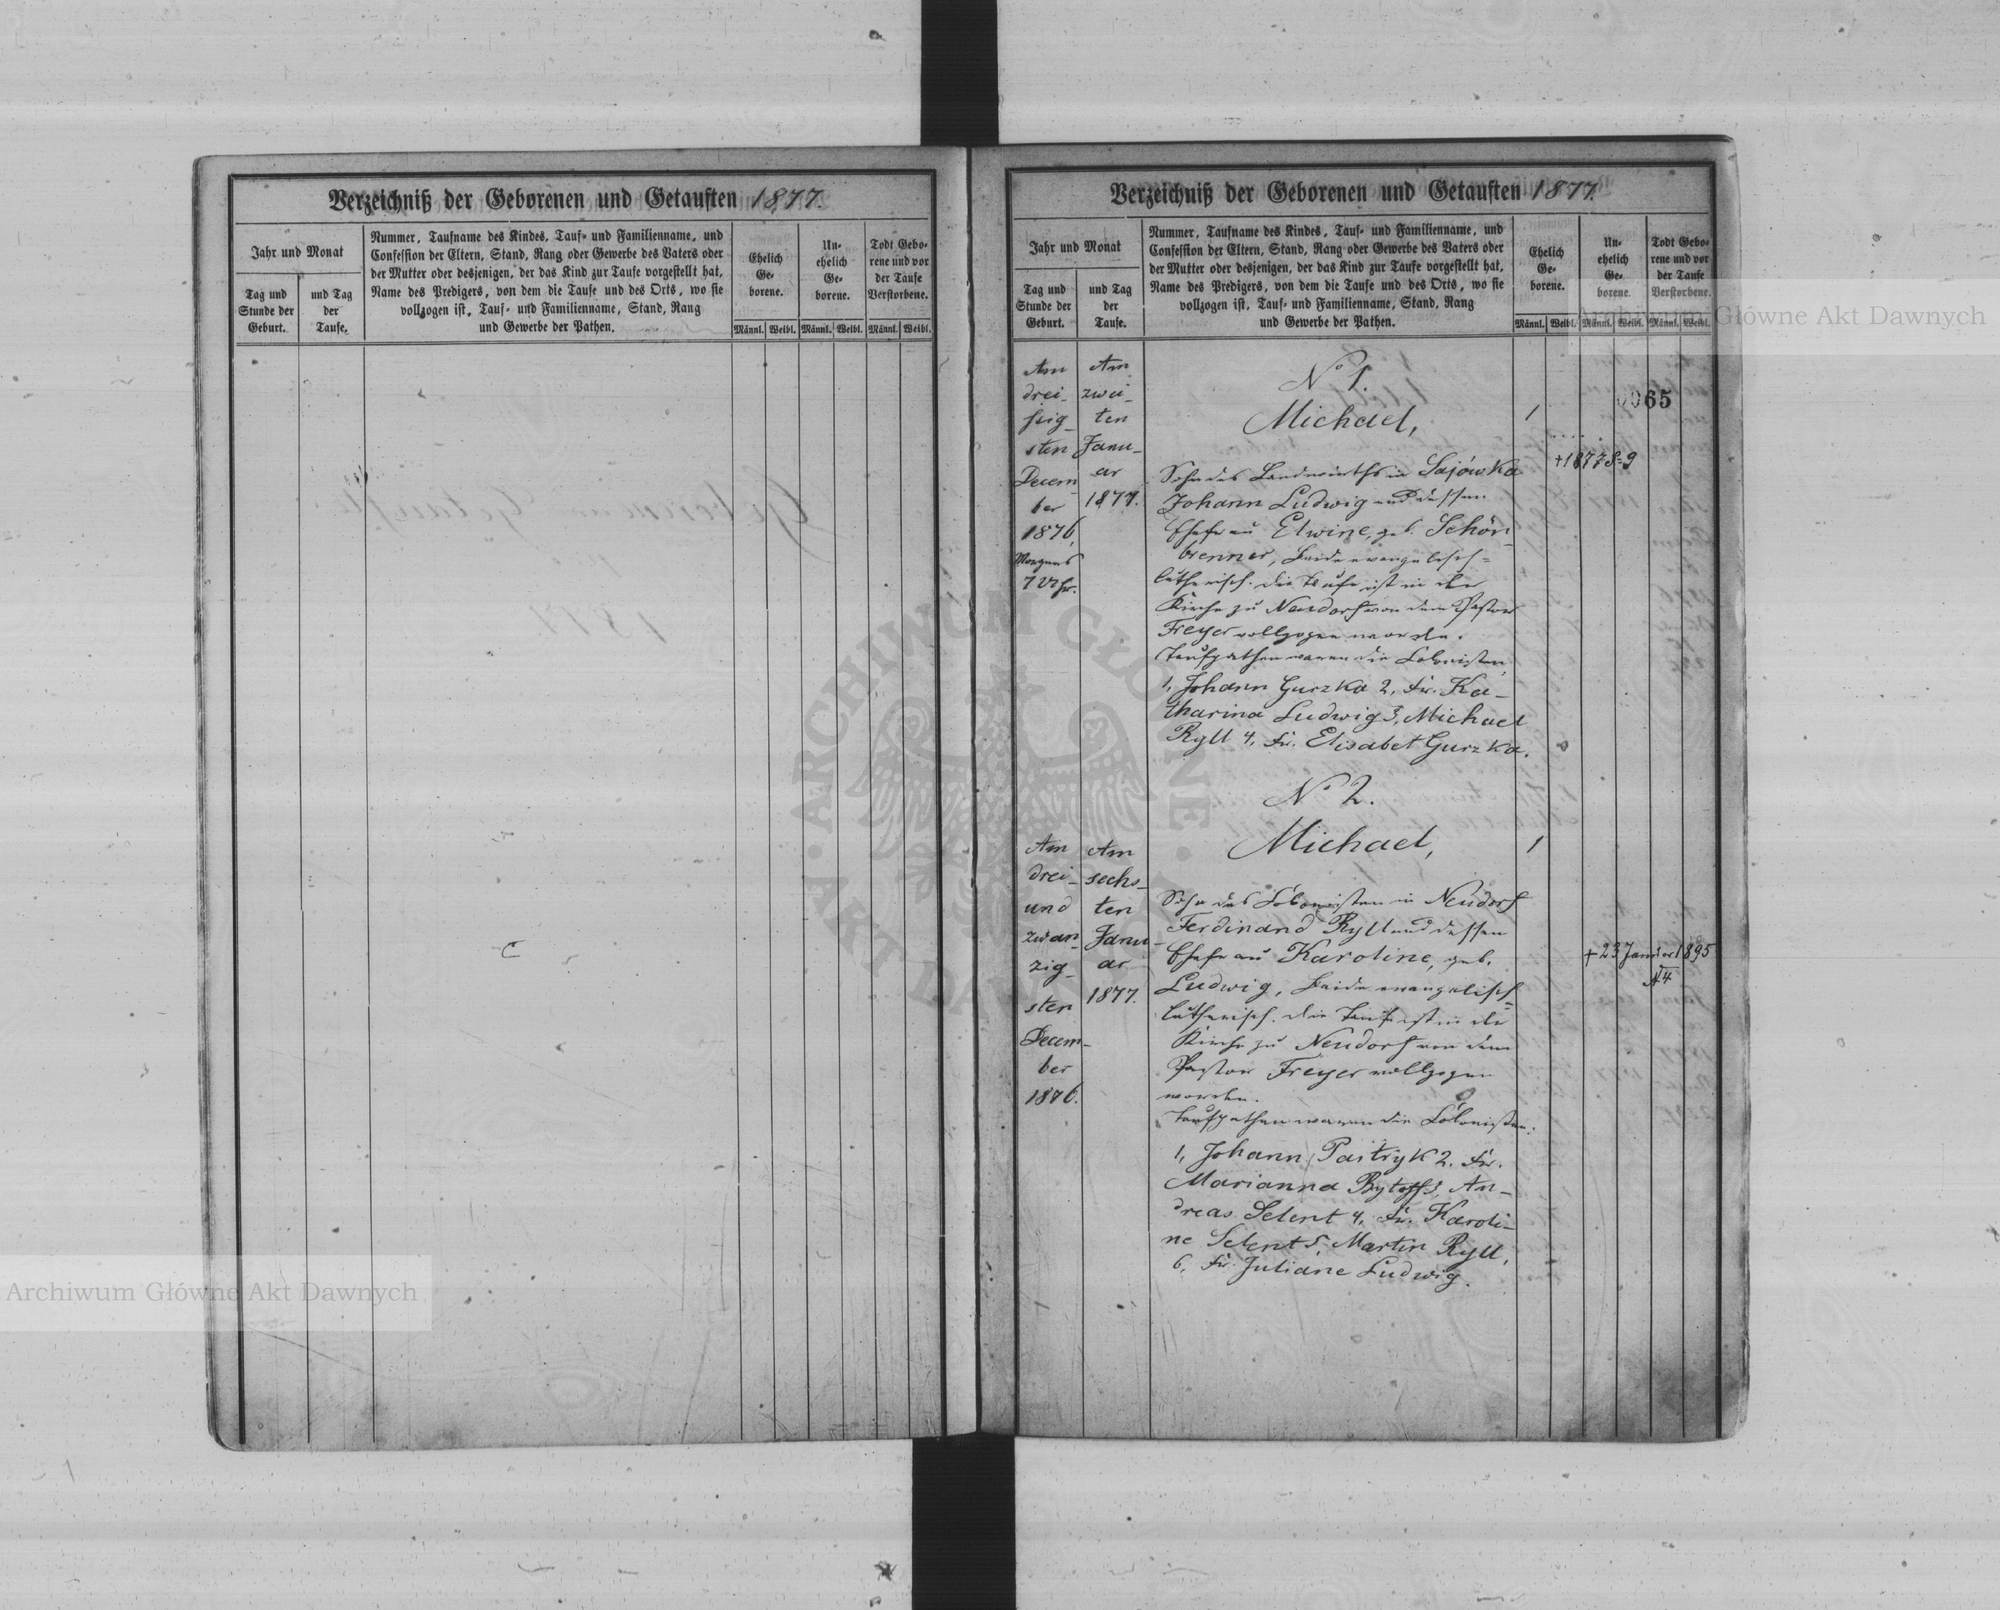 Verzeichniß der Geborenen und Getauften 1877.
Jahr und Monat
Tag und
Stunde der
Geburt.
und Tag
der
Taufe.
Nummer, Taufname des Kindes, Tauf- und Familienname, und
Confession der Eltern, Stand, Rang oder Gewerbe des Vaters oder
der Mutter oder desjenigen, der das Kind zur Taufe vorgestellt hat,
Name des Predigers, von dem die Taufe und des Orts, wo sie
vollzogen ist, Tauf- und Familienname, Stand, Rang
und Gewerbe der Pathen.
Ehelich
Ge-
borene.
Un-
ehelich
Ge-
borene.
Todt Gebo-
rene und vor
der Taufe
Verstorbene.
Männl. Weibl. Männl. Weibl. Männl. Weibl.
Verzeichniß der Geborenen und Getauften 1877.
Jahr und Monat
Tag und
Stunde der
Geburt.
und Tag
der
Taufe.
Nummer, Taufname des Kindes, Tauf- und Familienname, und
Confession der Eltern, Stand, Rang oder Gewerbe des Vaters oder
der Mutter oder desjenigen, der das Kind zur Taufe vorgestellt hat,
Name des Predigers, von dem die Taufe und des Orts, wo sie
vollzogen ist, Tauf- und Familienname, Stand, Rang
und Gewerbe der Pathen.
Ehelich
Ge-
borene.
Un-
ehelich
Ge-
borene.
Todt Gebo-
rene und vor
der Taufe
Verstorbene.
Männl. Weibl. Männl. Weibl. Männl. Weibl.
Archiwum Główne Akt Dawnych
65
Am
drei-
ßig-
sten
Decem-
ber
1876,
Morgens
7 Uhr.
Am
zwei-
ten
Janu-
ar
1877.
No 1.
Michael,
1
Sohn des Landwirths in Sajówka
Johann Ludwig und dessen
Ehefrau Elwine, geb. Schön-
brenner, Beide evangelisch-
lutherisch. Die Taufe ist in der
Kirche zu Neudorf von dem Pastor
Freyer vollzogen worden.
Taufpathen waren die Colonisten
1, Johann Gurzka 2, Fr. Ka-
tharina Ludwig 3, Michael
Ryll 4, Fr. Elisabet Gurzka.
+1877 S=9
Am
drei-
und
zwan-
zig-
sten
Decem-
ber
1876.
Am
sechs-
ten
Janu-
ar
1877.
No 2.
Michael,
1
Sohn des Colonisten in Neudorf
Ferdinand Ryll und dessen
Ehefrau Karoline, geb.
Ludwig, Beide evangelisch-
lutherisch. Die Taufe ist in der
Kirche zu Neudorf von dem
Pastor Freyer vollzogen
worden.
Taufpathen waren die Colonisten:
1, Johann Paitryk 2, Fr.
Marianna 3, An-
dreas Selent 4, Fr. Karoli-
ne Selent 5, Martin Ryll,
6, Fr. Juliane Ludwig.
+ 23 Januar 1895
N4
ARCHIWUM GŁÓWNE AKT DAWNYCH
Archiwum Główne Akt Dawnych